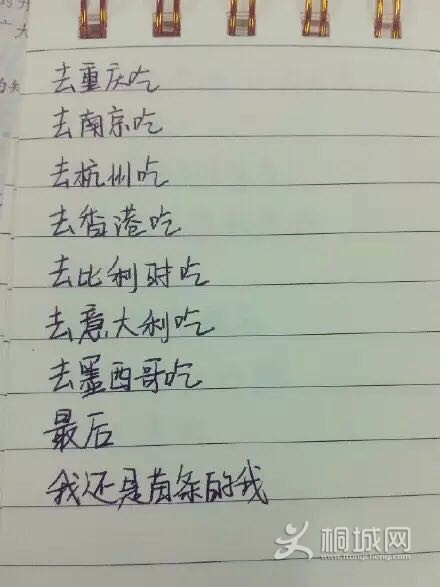 去重庆吃
去南京吃
去杭州吃
去香港吃
去比利时吃
去意大利吃
去墨西哥吃
最后
我还是苗条的我
桐城网
tongcheng.com